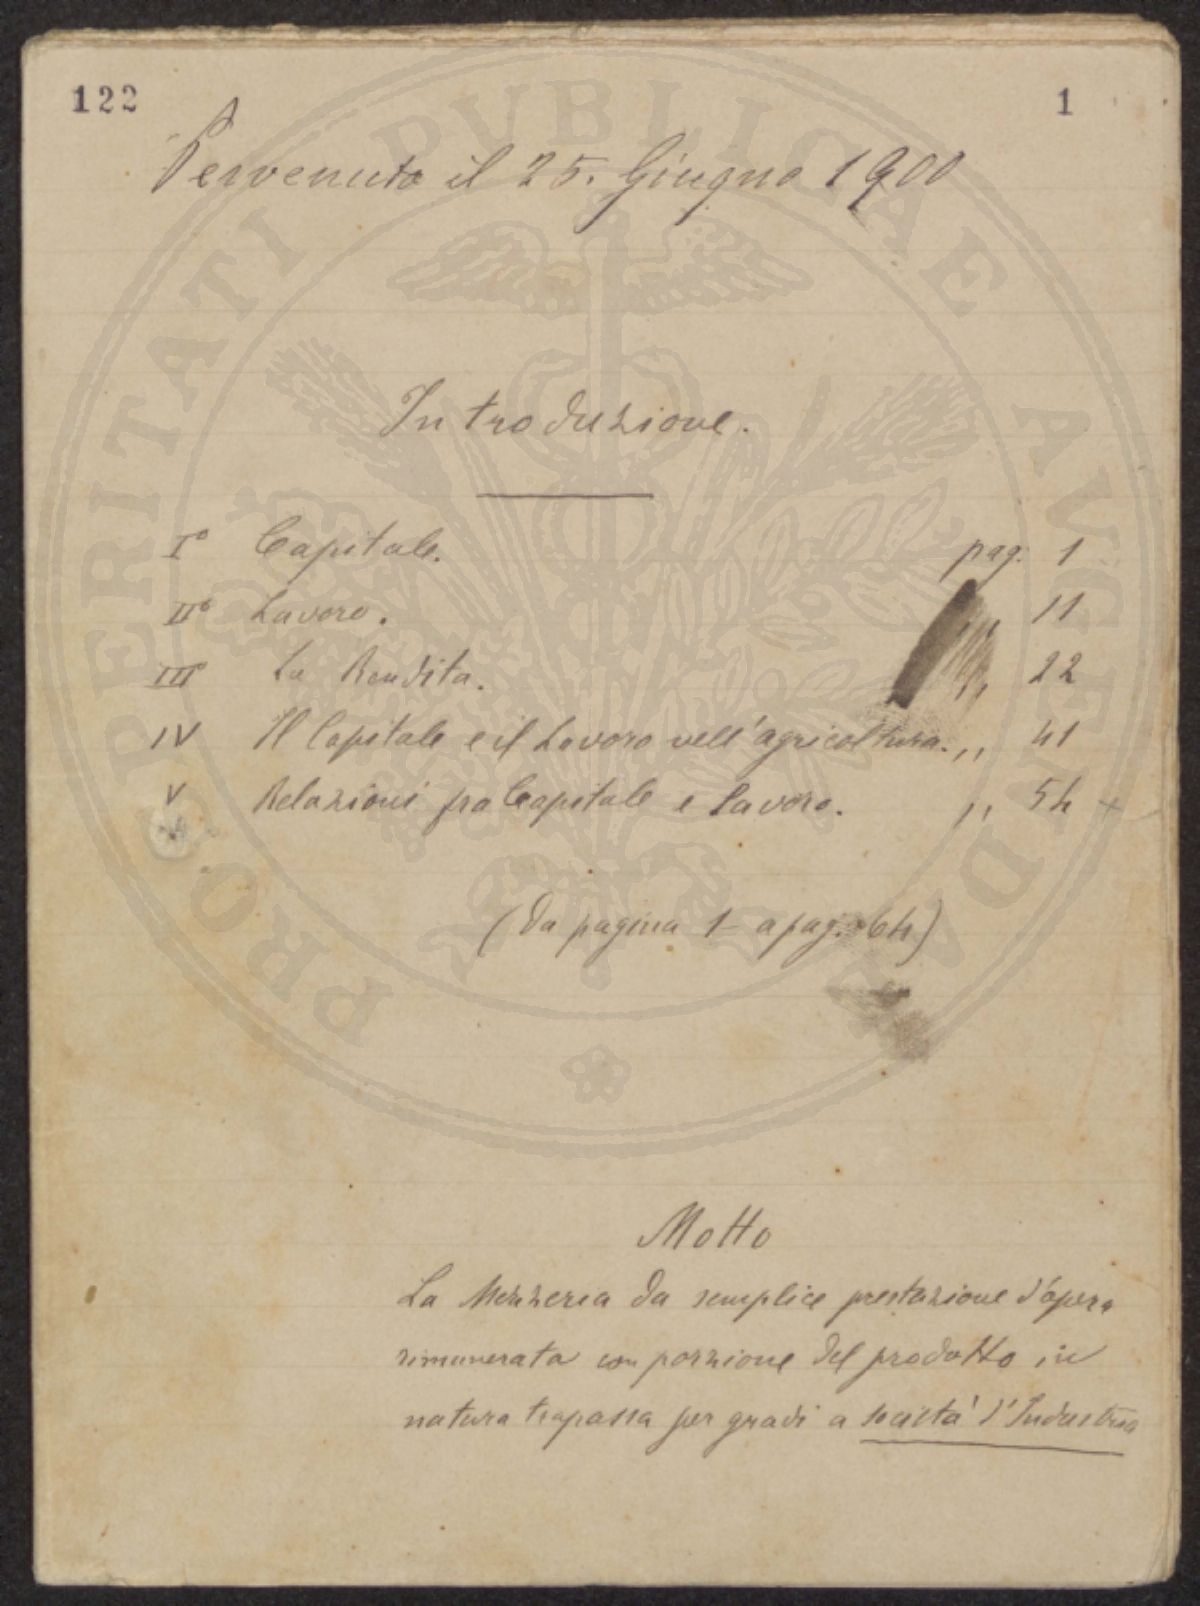 122
1
Pervenuto il 25. Giugno 1900
PROSPERITATI PUBLICAE AVGENDAE
Introduzione.
I° Capitale. pag. 1
II° Lavoro. ,, 11
III° La Rendita. ,, 22
IV Il Capitale e il Lavoro nell'agricoltura. ,, 41
V Relazioni fra Capitale e lavoro. ,, 54
(Da pagina 1 - a pag. 64)
Motto
La Mezzeria da semplice prestazione d'opera
rimunerata con porzione del prodotto in
natura trapassa per gradi a società d'Industria